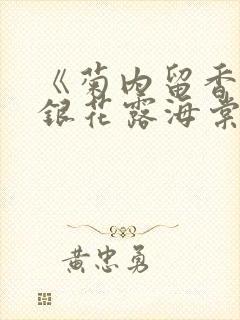 《菊内留香
銀花露海棠
黄忠勇